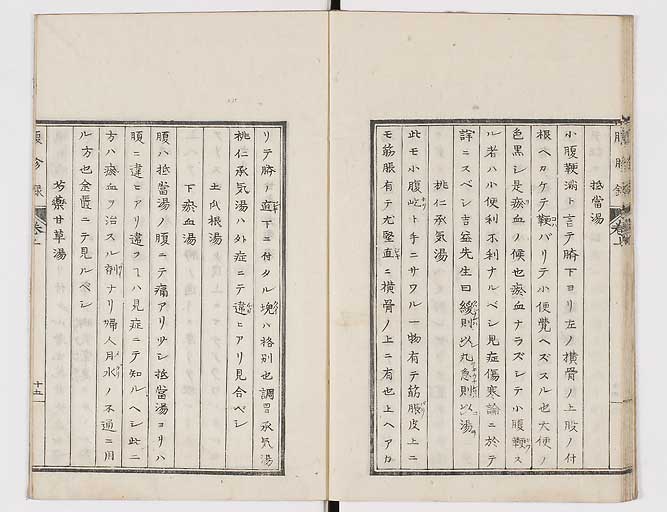 抵當湯
小腹鞕滿ト言テ臍下ヨリ左ノ横骨ノ上股ノ付
根ヘカケテ鞕バリテ小便覺ヘズスル也大便ノ
色黒シ是瘀血ノ候也瘀血ナラズシテ小腹鞕ス
ル者ハ小便利不利ナルベシ見症傷寒論ニ於テ
詳ニスベシ吉益先生曰緩則以丸急則以湯
桃仁承気湯
此モ小腹ヒト手ニサワル一物有テ筋脹皮上ニ
モ筋脹有テ尤堅直ニ横骨ノ上ニ有也上ヘアカ
リテ臍ノ直下ニ付タル塊ハ格別也調胃承気湯
桃仁承気湯ハ外症ニテ違ヒアリ見合ベシ
土瓜根湯
下瘀血湯
腹ハ抵當湯ノ腹ニテ痛アリ少シ抵當湯ヨリハ
腹ニ違ヒアリ違フ丁ハ見症ニテ知ルヘシ此二
方ハ瘀血ヲ治スル剤ナリ婦人月水ノ不通ニ用
ル方也金匱ニテ見ルベシ
芍藥甘草湯
腹診録
卷上
十五